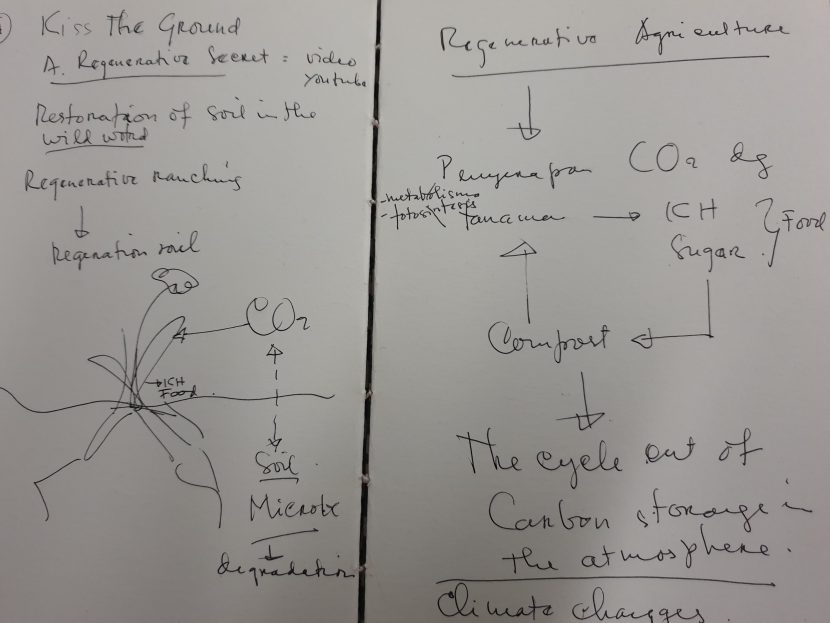 Kiss The Ground
A. Regenerative Secret = video
youtube
Restoration of soil in the
will word
Regenerative ranching
Regenation soil
CO2
ICH
Food
Soil
Microbe
degradation
Regenerative Agriculture
Penyerapan CO2 dg
-metabolisme
-fotosintesis
Tanaman → ICH
Sugar
Food
Compost
The cycle out of
Carbon storage in
the atmosphere.
Climate changes